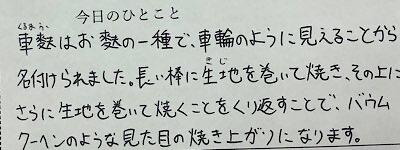 今日のひとこと
車麩はお麩の一種で、車輪のように見えることから
名付けられました。長い棒に生地を巻いて焼き、その上に
さらに生地を巻いて焼くことをくり返すことで、バウム
クーヘンのような見た目の焼き上がりになります。